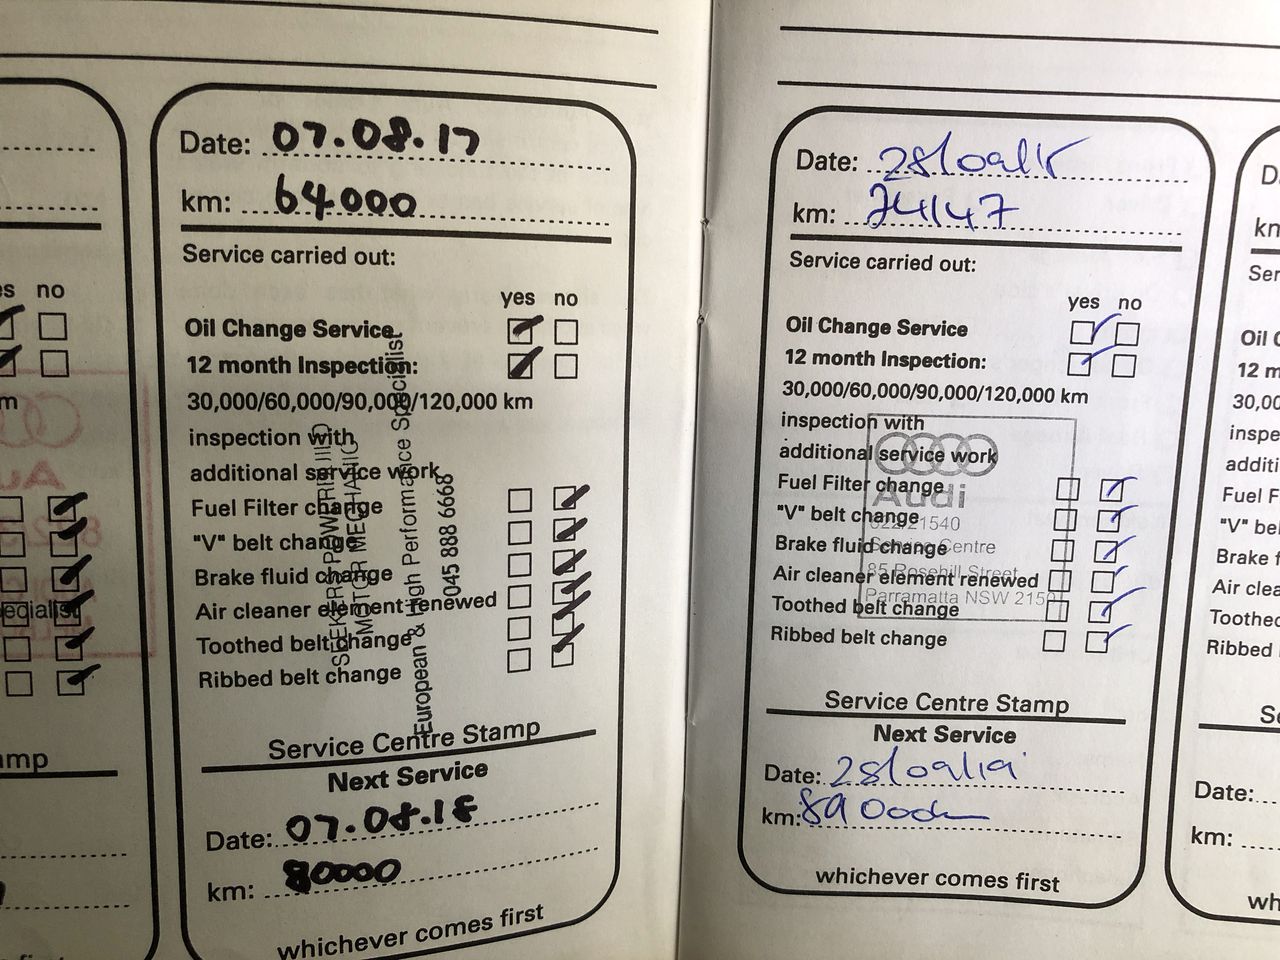 es no
m
ecialist
amp
Date: 07.08.17
km: 64000
Service carried out:
yes no
Oil Change Service
12 month Inspection:
30,000/60,000/90,000/120,000 km
inspection with
additional service work
Fuel Filter change
"V" belt change
Brake fluid change
Air cleaner element renewed
Toothed belt change
Ribbed belt change
MOTOR MECHANIC
European & High Performance Specialist
045 888 6668
Service Centre Stamp
Next Service
Date: 07.08.18
km: 80000
whichever comes first
Date: 28/09/18
km: 74147
Service carried out:
yes no
Oil Change Service
12 month Inspection:
30,000/60,000/90,000/120,000 km
inspection with
additional service work
Fuel Filter change
"V" belt change
Brake fluid change
Air cleaner element renewed
Toothed belt change
Ribbed belt change
Audi
Service Centre
85 Rosehill Street
Parramatta NSW 2150
Service Centre Stamp
Next Service
Date: 28/09/19
km: 89000
whichever comes first
D
km
Ser
Oil C
12 m
30,00
inspe
additi
Fuel F
"V" be
Brake f
Air clea
Toothed
Ribbed
Se
Date:
km:
wh